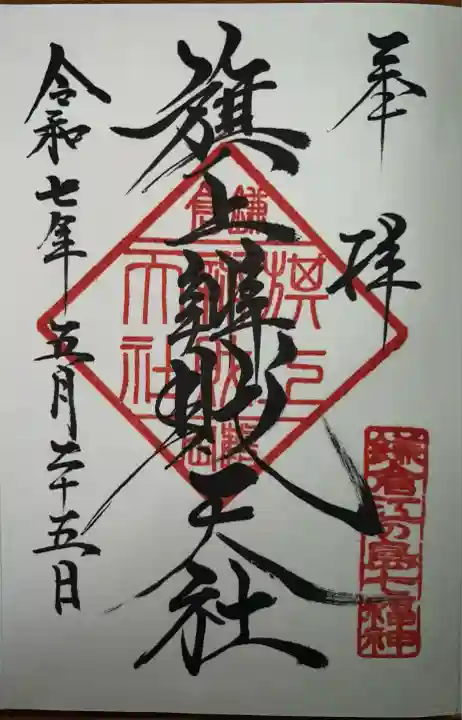 奉拝
旗上辨戝天社
鎌倉
旗上
天社
鎌倉江の島七福神
令和七年五月二十五日